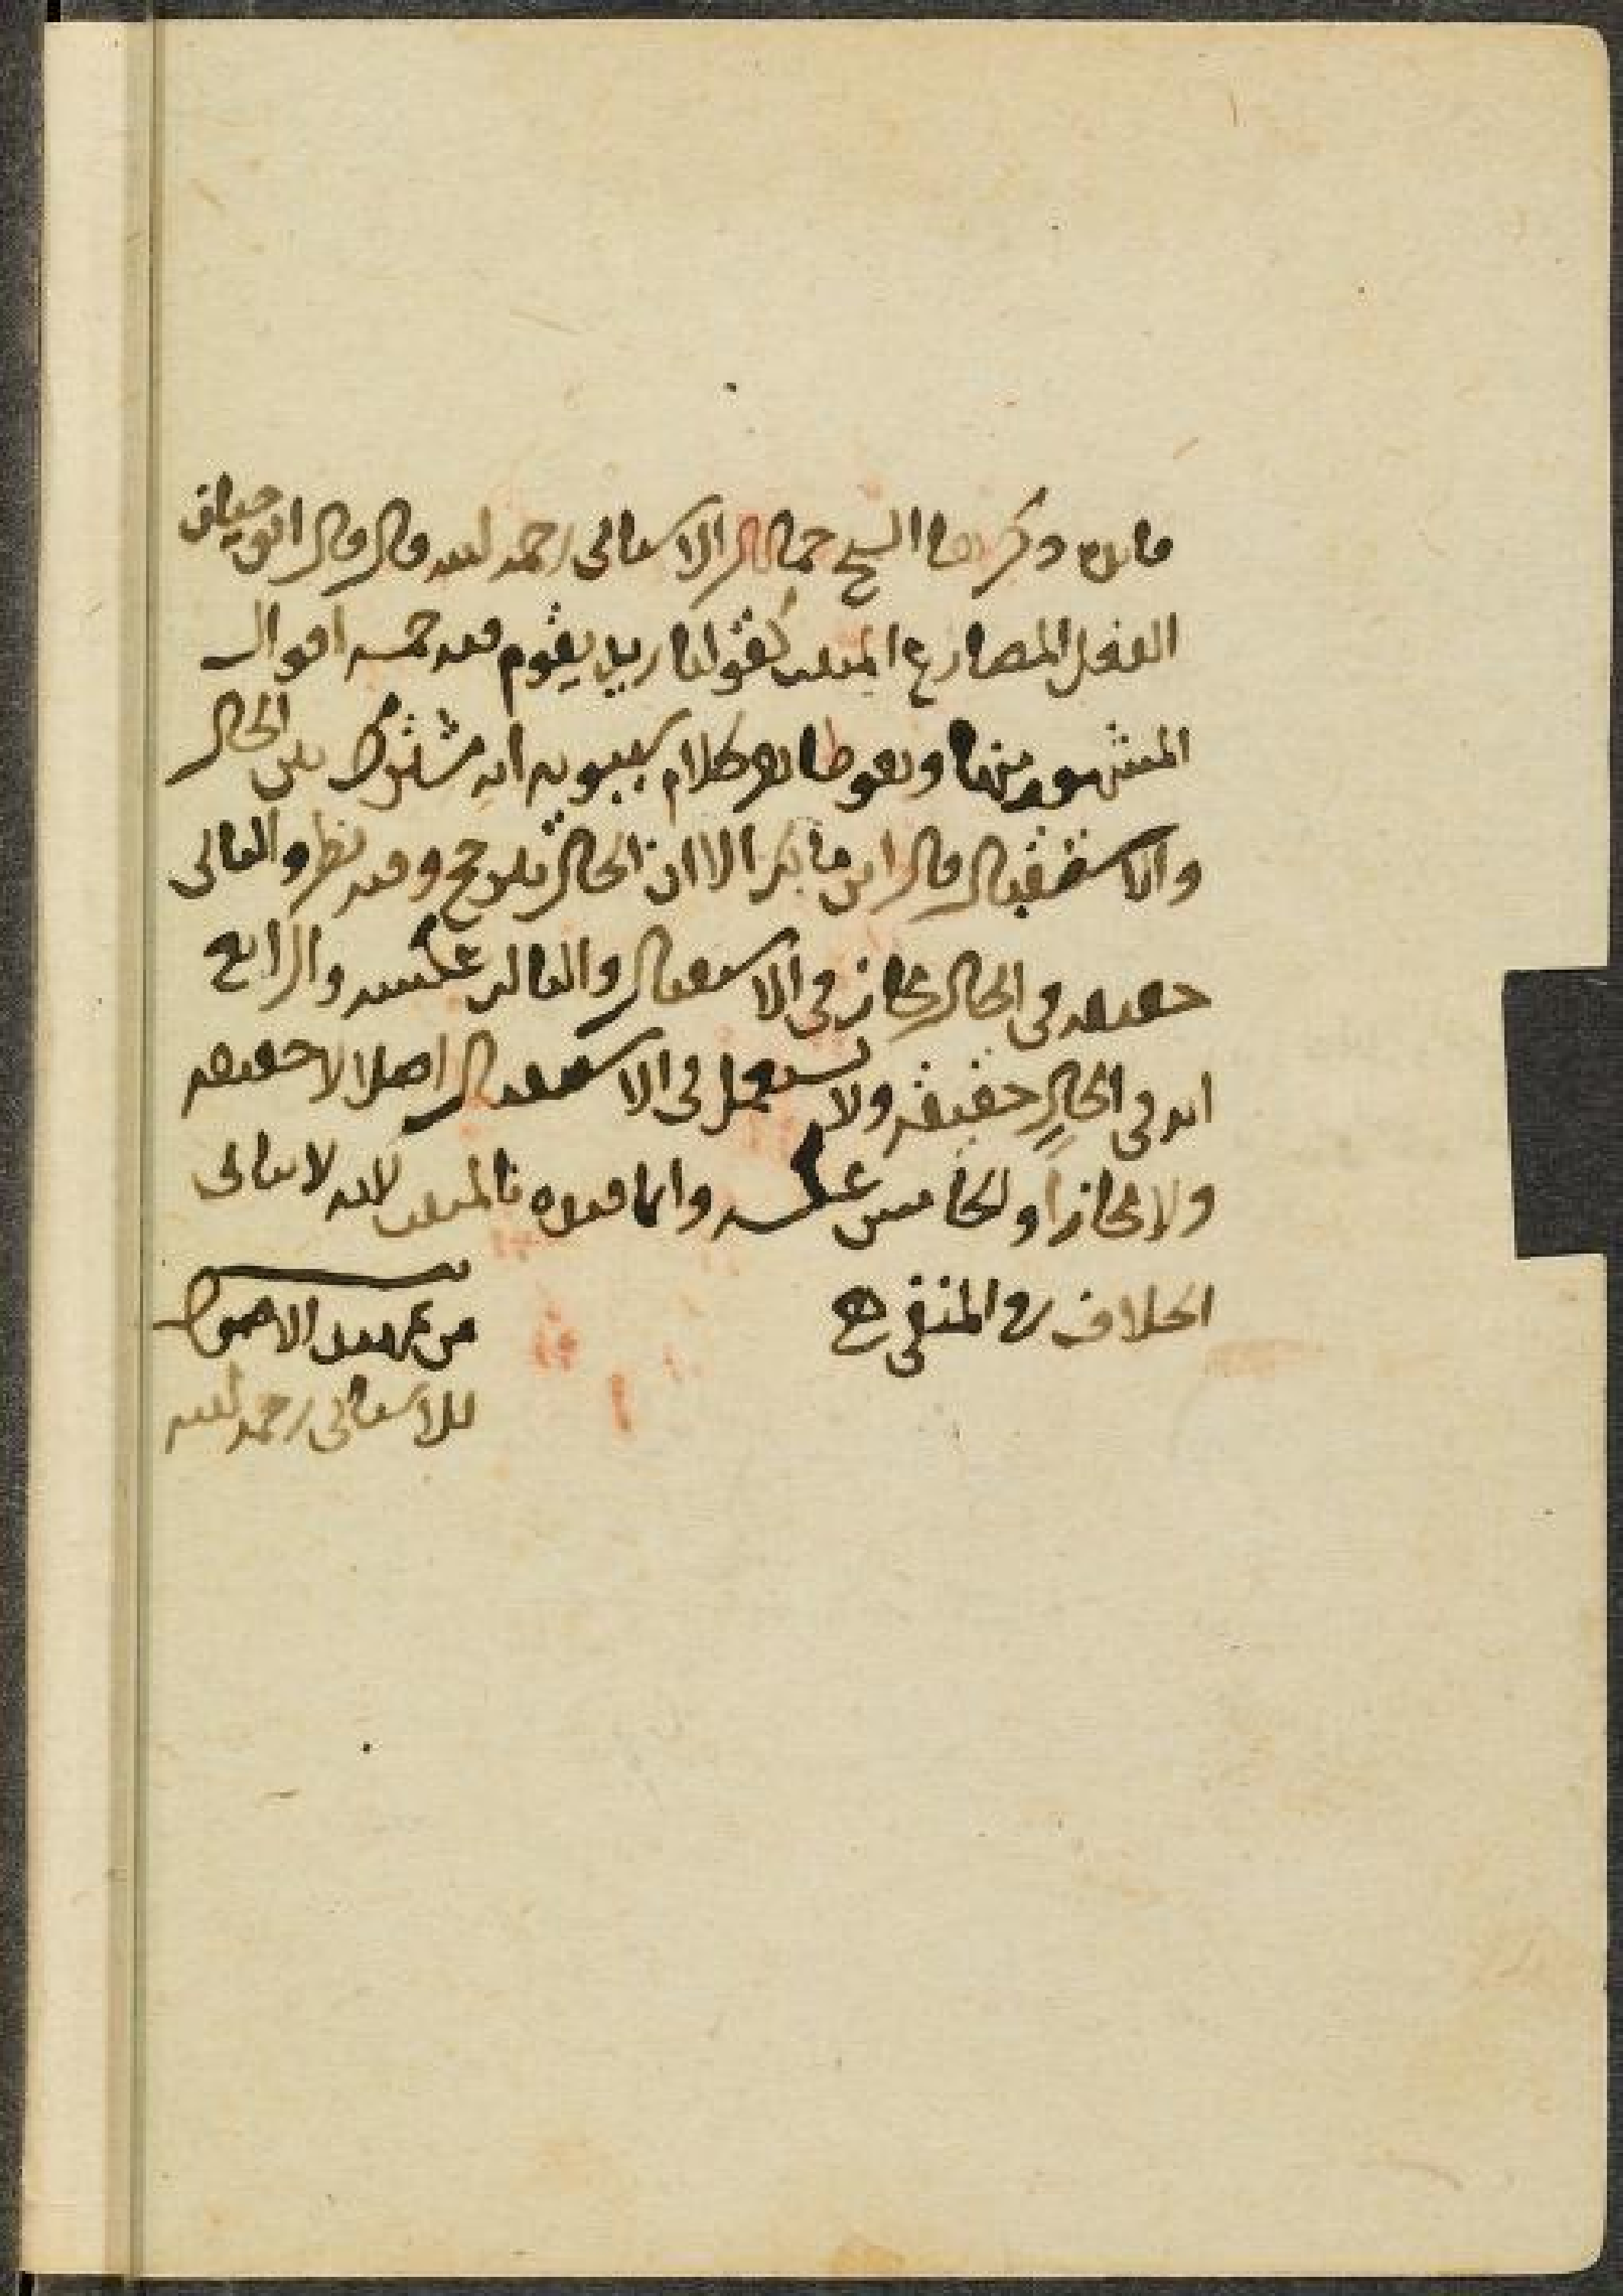 فايده ذكرها الشيخ جمال الدين الاسنائي رحمه الله قال قال ابو حيان
الفعل المضارع المثبت كقولنا زيد يقوم فيه خمسة اقوال
المشهور منها وهو ظاهر كلام سيبويه انه مشترك بين الحال
والاستقبال قال ابن مالك الا ان الحال يترجح وفيه نظر والثاني
حقيقة في الحال مجاز في الاستقبال والثالث عكسه والرابع
انه في الحال حقيقة ولا يستعمل في الاستقبال اصلا لا حقيقة
ولا مجازا والخامس عكسه وانما قيده بالمثبت لانه لا يتاتى
الخلاف في المنفي
من تمهيد الاصول
للاسنائي رحمه الله